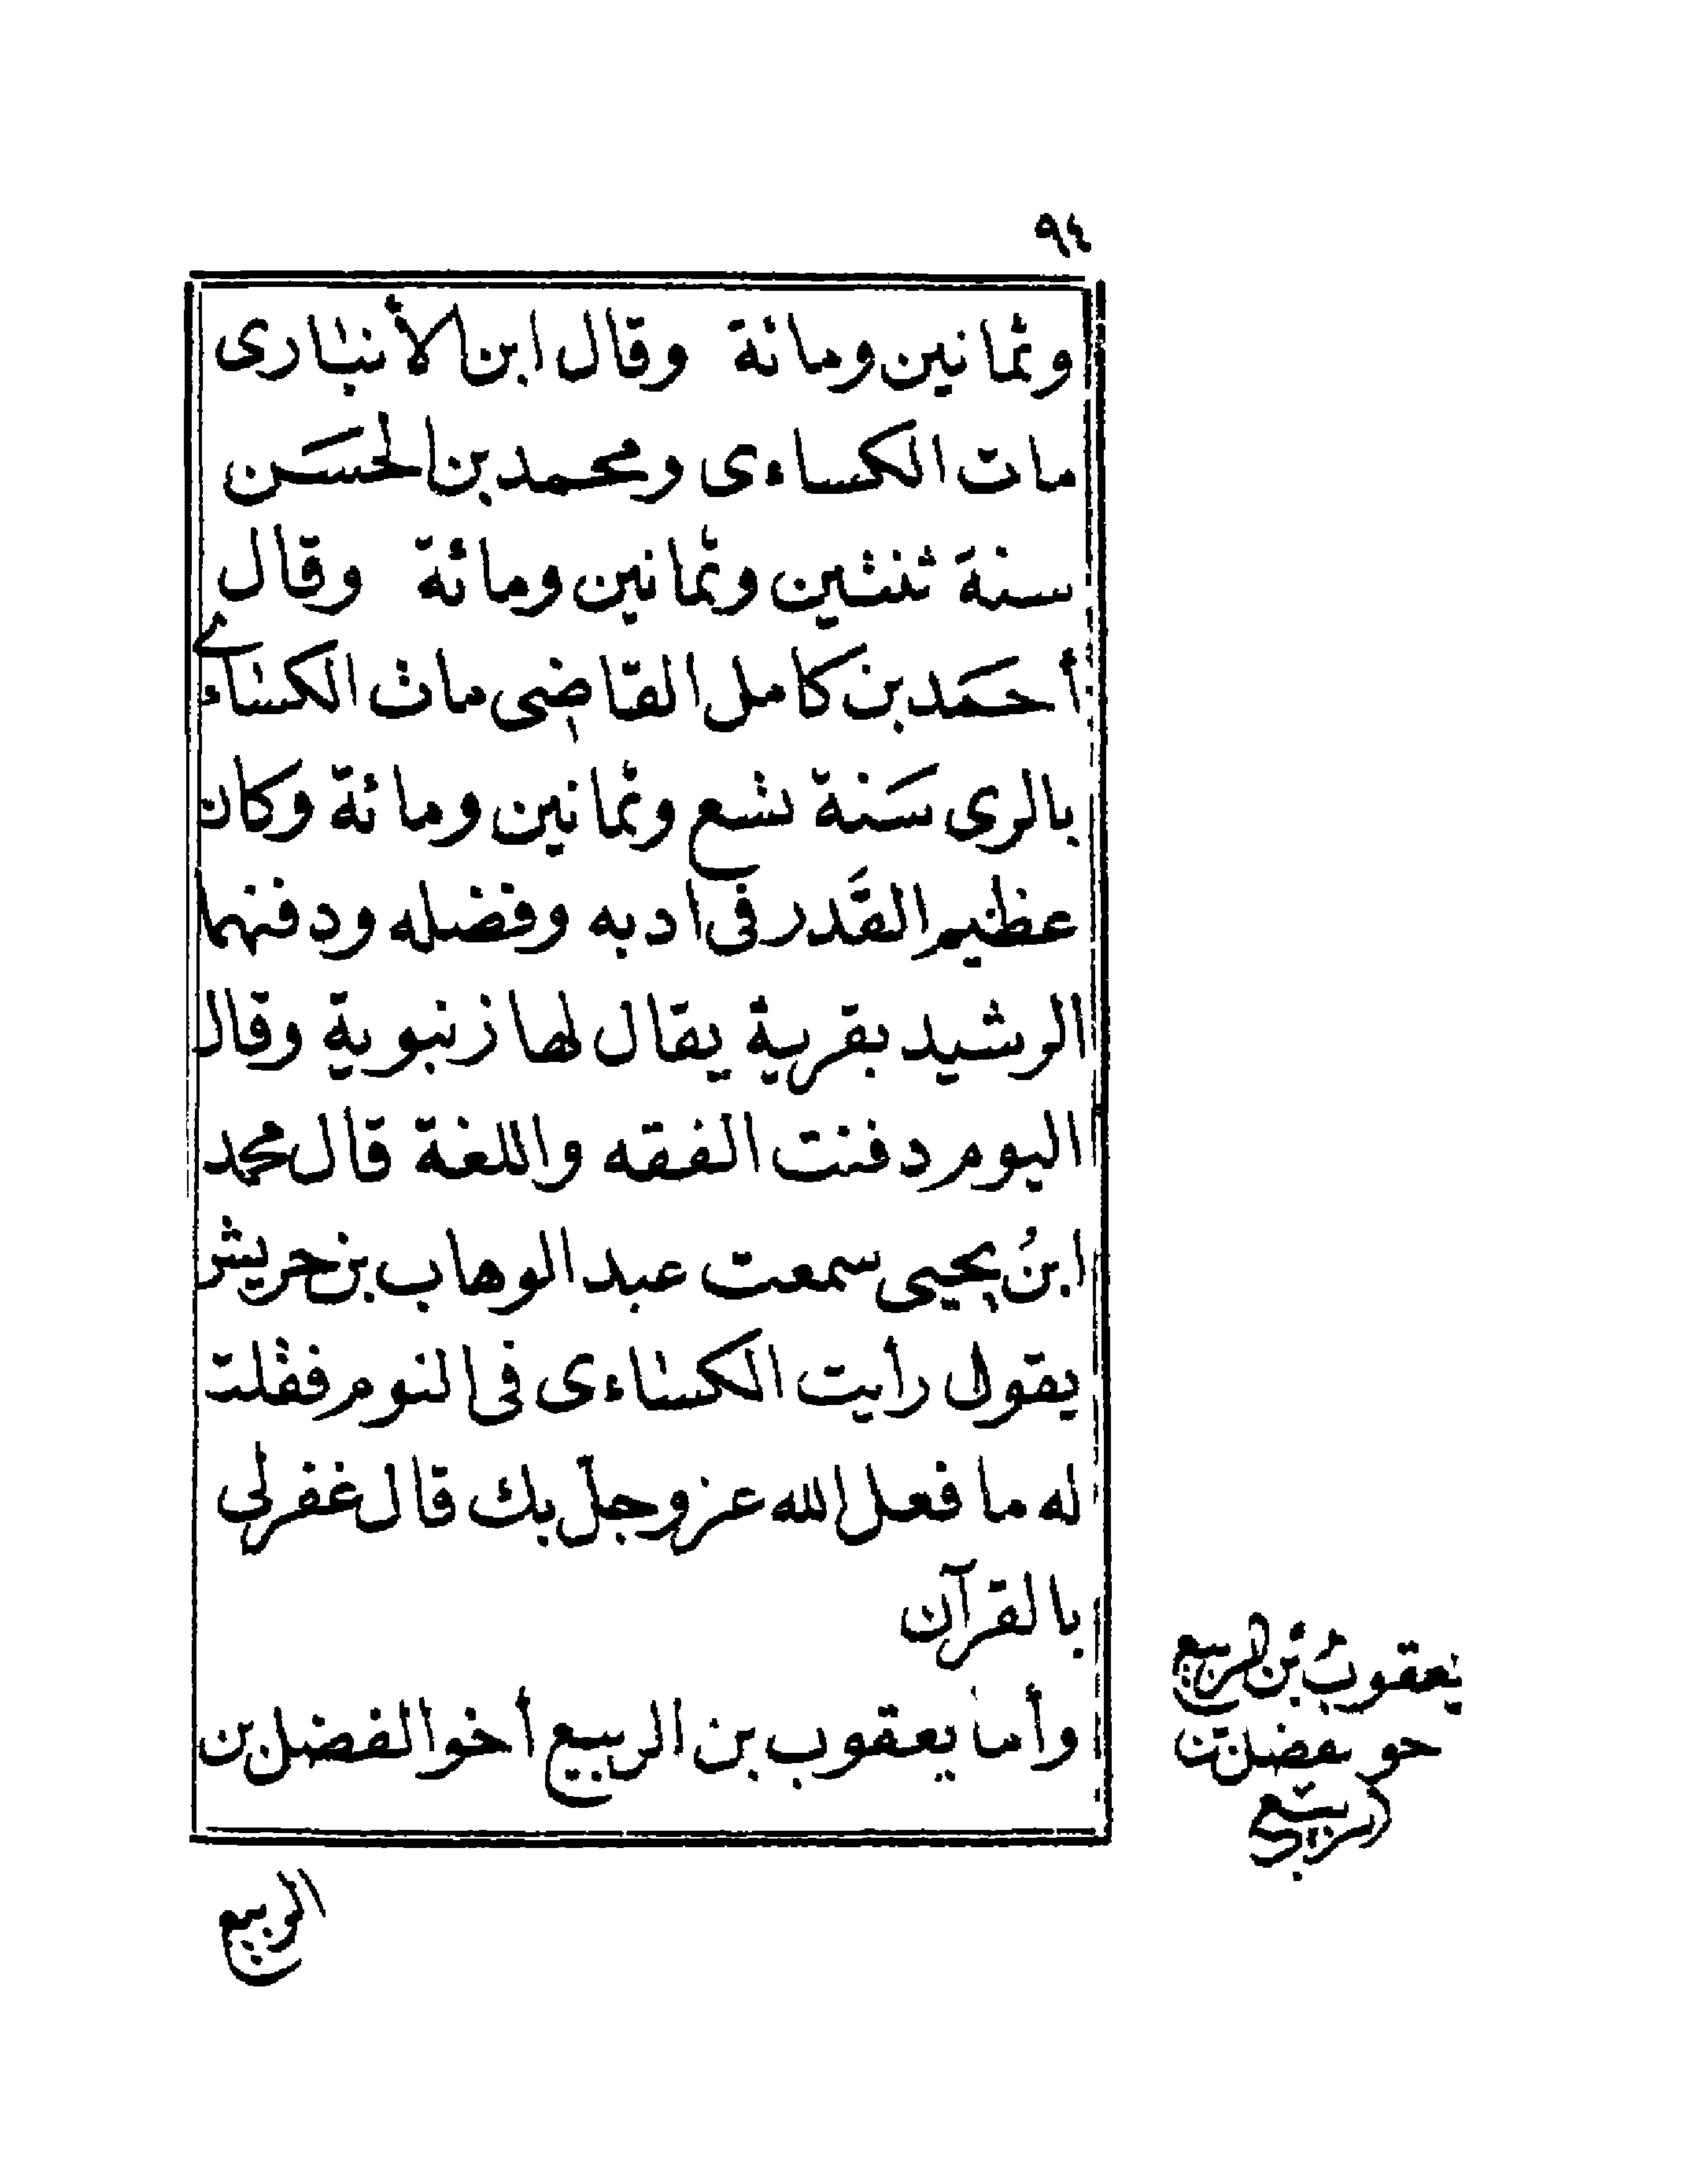 ٩٤
وثمانين ومائة وقال ابن الأنبارى
مات الكساءى ومحمد بن الحسَن
سنة ثنتين وثمانين ومائة وقال
أحمَد بن كامل القاضى مات الكساءى
بالرى سَنة تسع وثمانين ومائة وكان
عظيم القَدر فى ادبه وفضله ودفنهما
الرشيد بقرية يقال لها زنبوية وقال
اليوم دفنت الفقه واللغة قال محمد
ابنُ يحيى سمعت عبد الوهاب بن حريش
يقول رأيت الكساءى فى النوم فقلت
له ما فعل الله عز وجل بك قال غفر لى
بالقرآن
وأما يعقوب بن الربيع أخو الفضل بن
يعقوب بن الربيع
خو لفضل بن
الربيع
الربيع